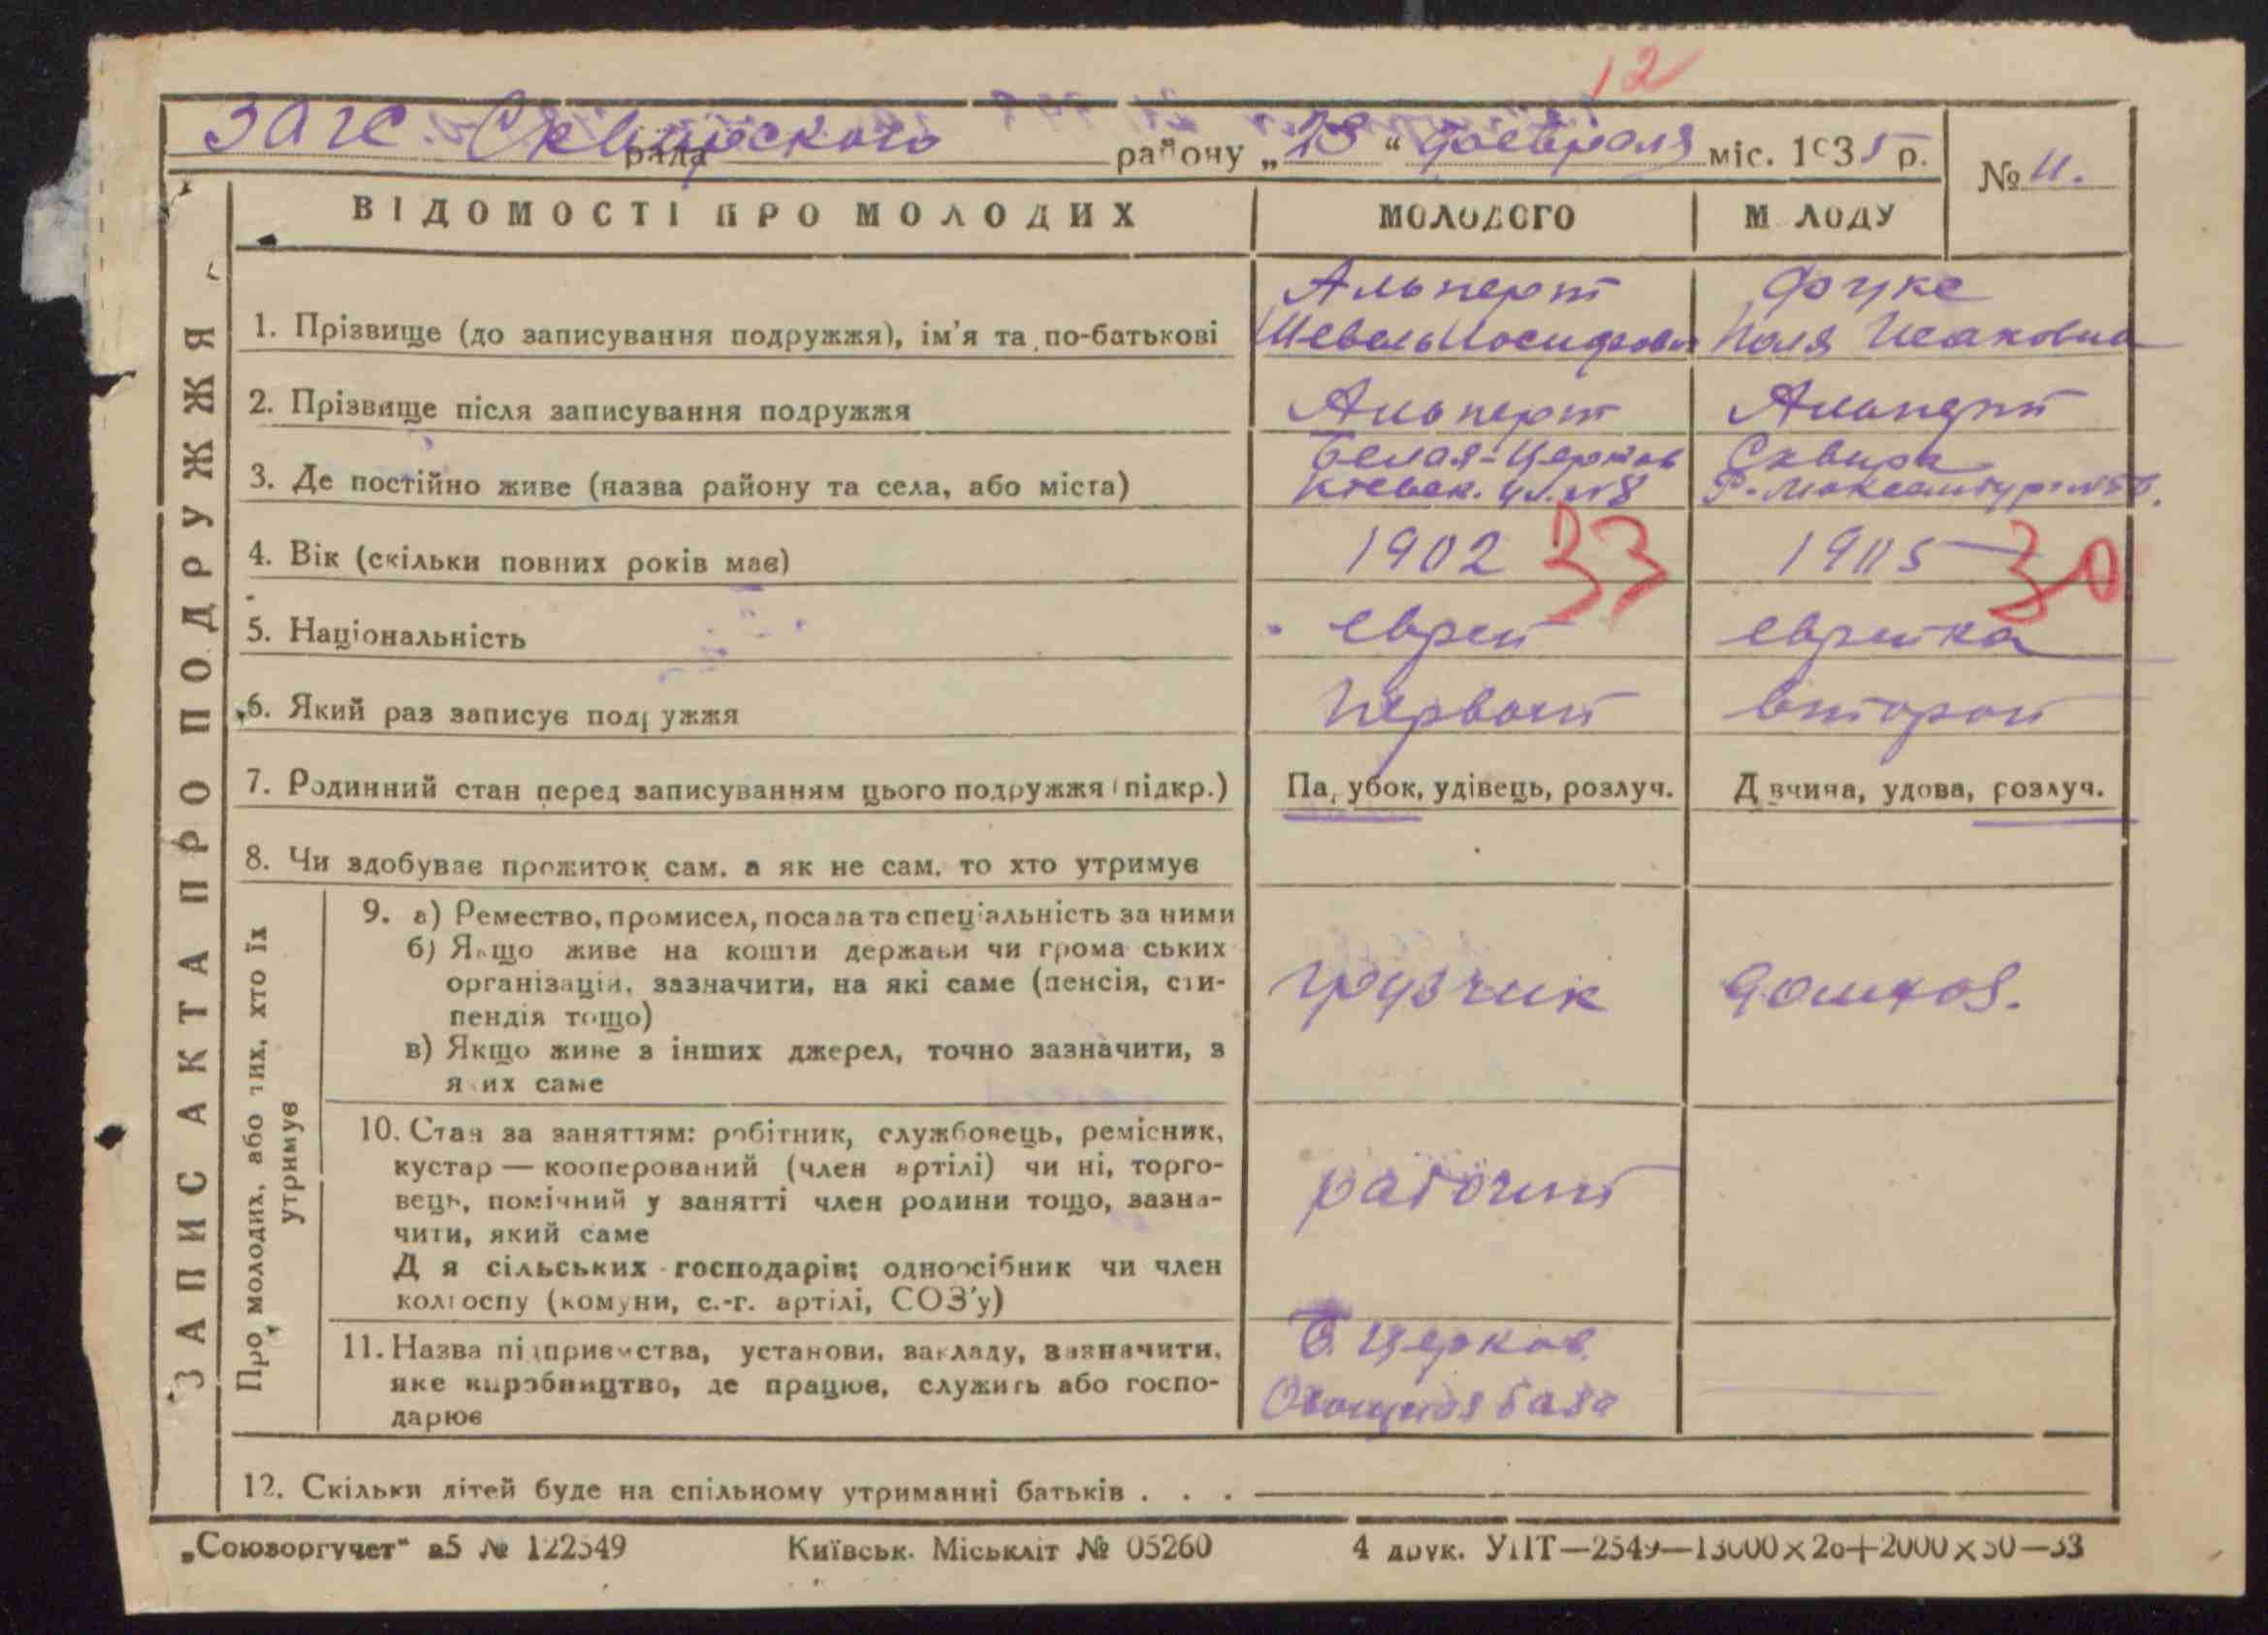 12
ЗАГС Сквирского рада району „28“ февраля міс. 1935 р.
№ 11.
ВІДОМОСТІ ПРО МОЛОДИХ МОЛОДОГО МОЛОДУ
ЗАПИС АКТА ПРО ПОДРУЖЖЯ
Альперт Фукс
1. Прізвище (до записування подружжя), ім'я та по-батькові Шевель Иосифович Поля Исаковна
2. Прізвище після записування подружжя Альперт Альперт
Белая-Церковь Сквира
3. Де постійно живе (назва району та села, або міста) Киевск. ул. №8
4. Вік (скільки повних років має) 1902 33 1905 30
5. Національність еврей еврейка
6. Який раз записує подружжя первый второй
7. Родинний стан перед записуванням цього подружжя (підкр.) Парубок, удівець, розлуч. Дівчина, удова, розлуч.
8. Чи здобуває прожиток сам, а як не сам, то хто утримує
Про молодих, або тих, хто їх утримує
9. а) Ремество, промисел, посада та спеціальність за ними
б) Якщо живе на кошти держави чи громадських
організацій, зазначити, на які саме (пенсія, сти-
пендія тощо) грузчик домхоз.
в) Якщо живе з інших джерел, точно зазначити, з
яких саме
10. Стан за заняттям: робітник, службовець, ремісник,
кустар — кооперований (член артілі) чи ні, торго-
вець, помічний у занятті член родини тощо, зазна- рабочий
чити, який саме
Для сільських господарів: одноосібник чи член
колгоспу (комуни, с.-г. артілі, СОЗ'у)
11. Назва підприємства, установи, закладу, зазначити, Б. Церков.
яке виробництво, де працює, служить або госпо- Овощная база
дарює
12. Скільки дітей буде на спільному утриманні батьків . . .
„Союзоргучет“ а5 № 122549 Київськ. Міськліт № 05260 4 друк. УПТ—2549—13000×20+2000×50—33